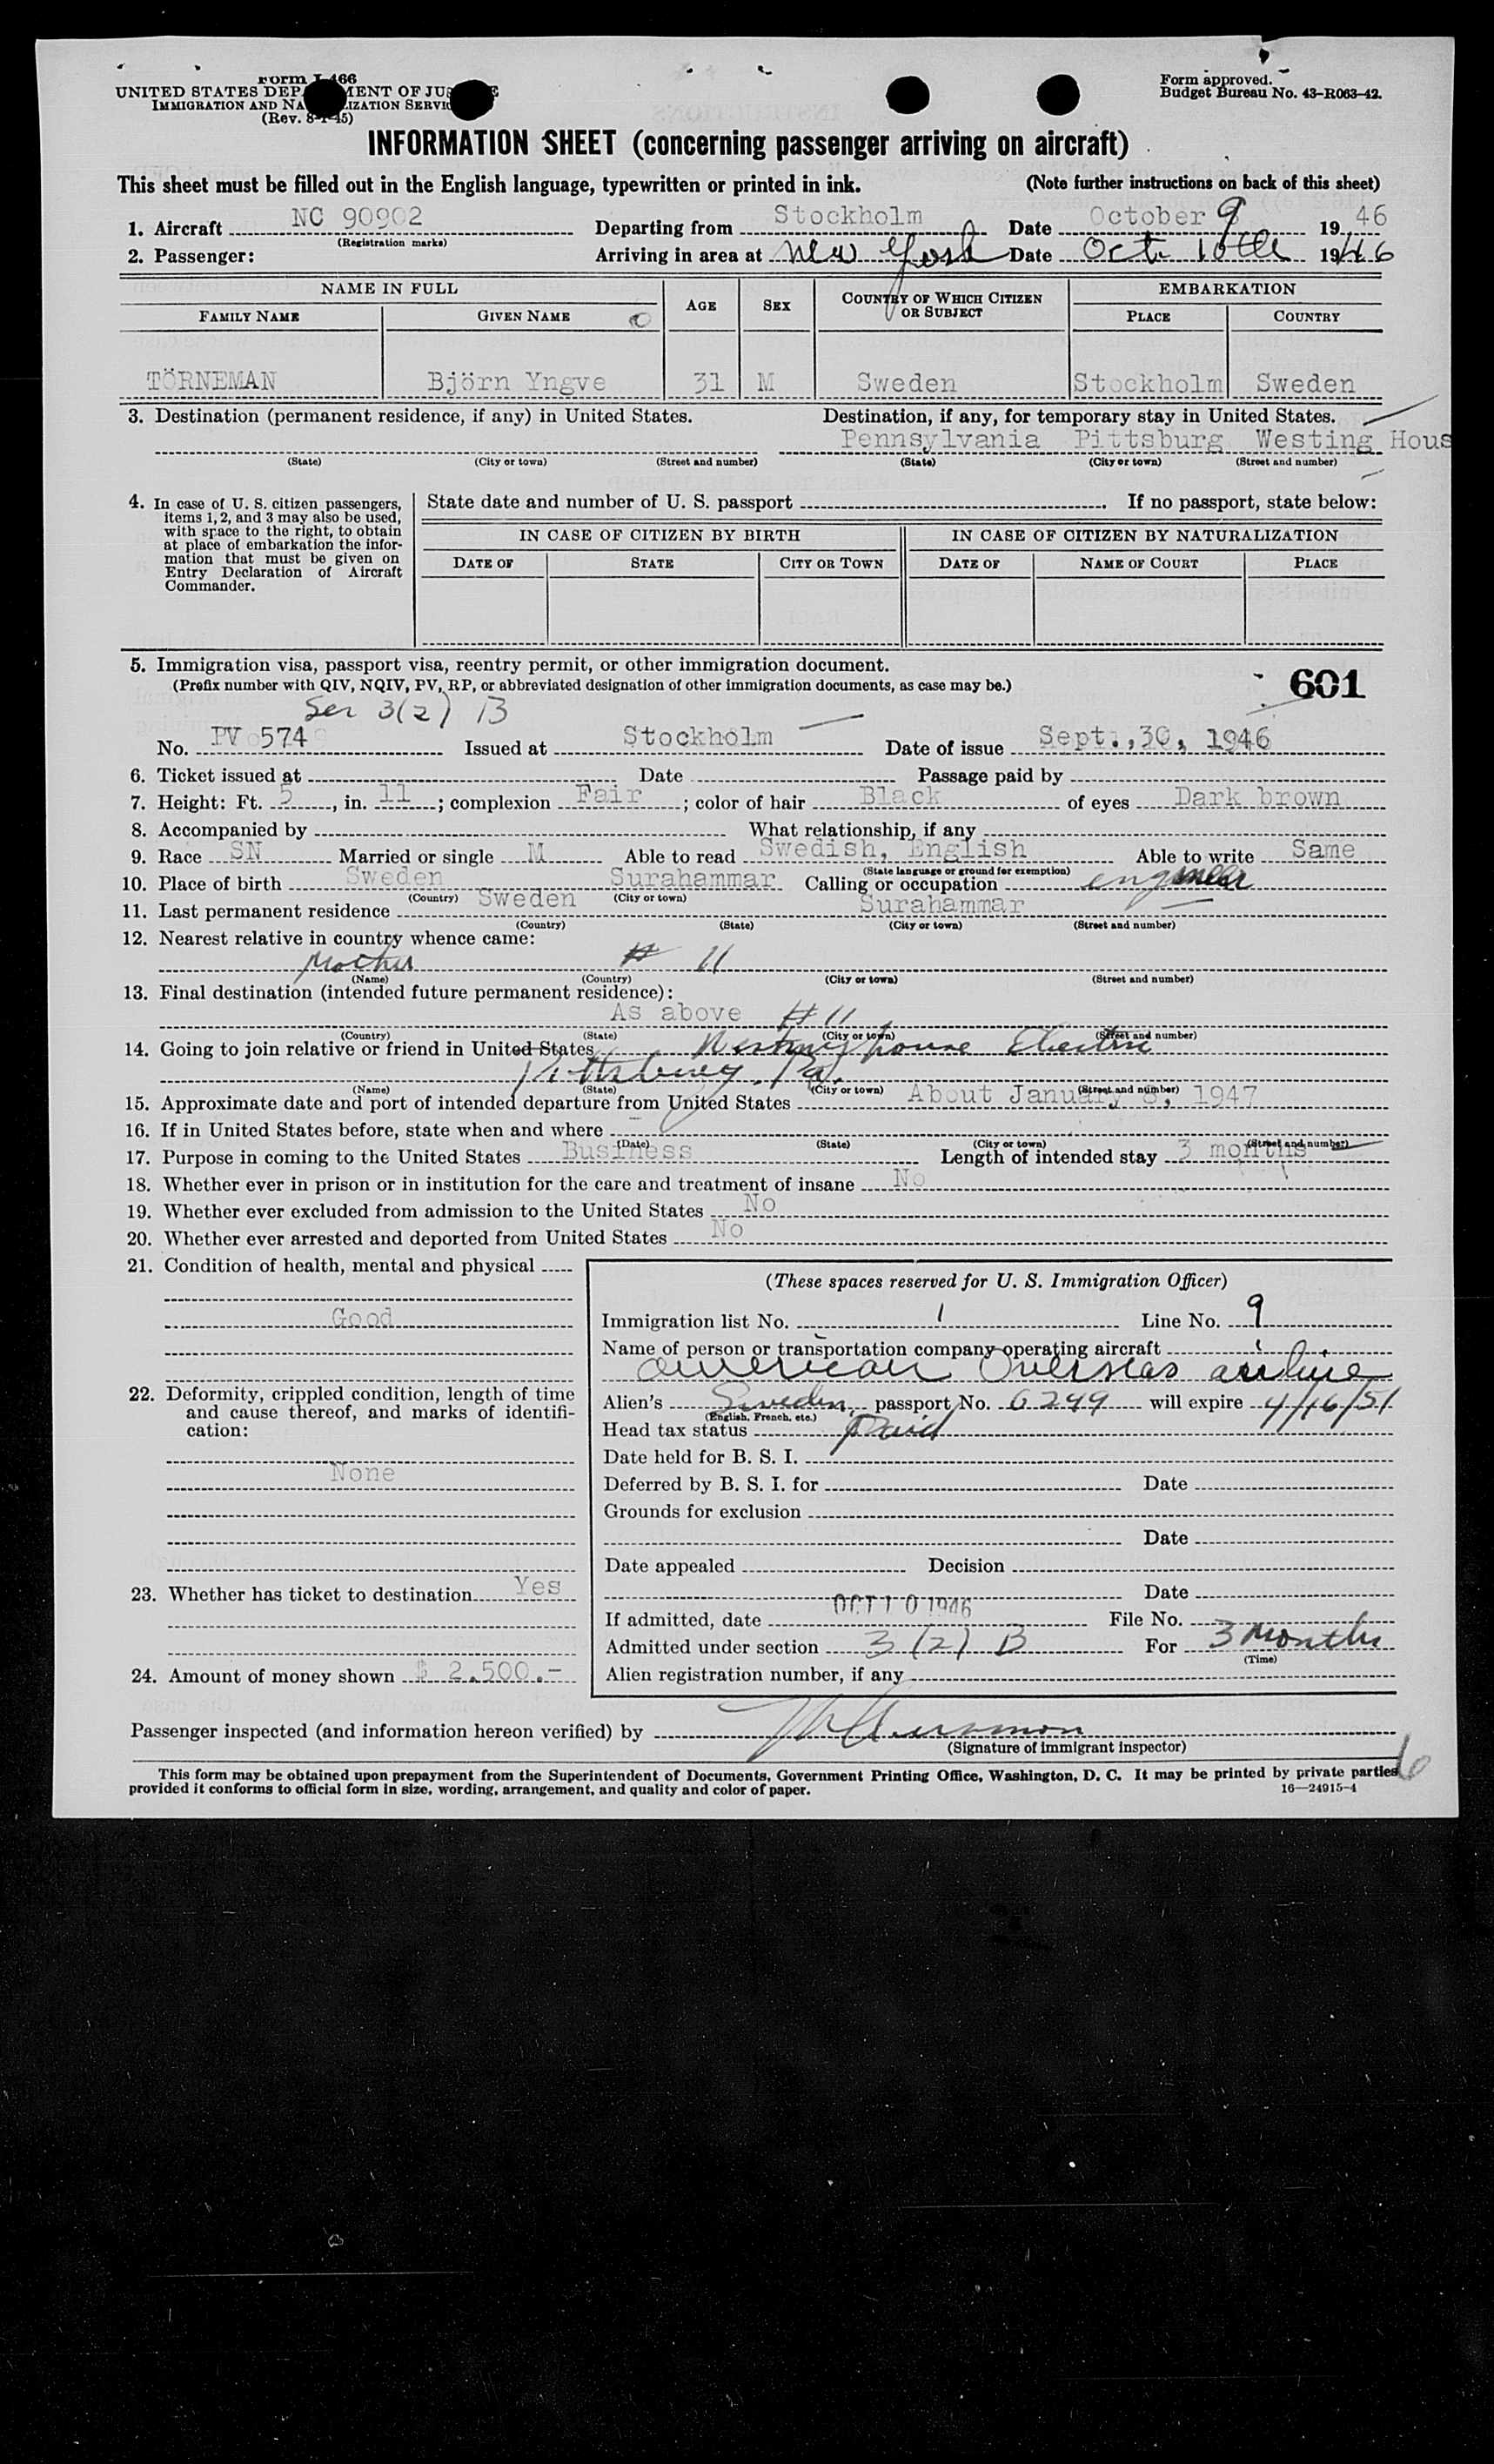 Form I-466
UNITED STATES DEPARTMENT OF JUSTICE
IMMIGRATION AND NATURALIZATION SERVICE
(Rev. 8-1-45)
Form approved.
Budget Bureau No. 43-R063-42.
INFORMATION SHEET (concerning passenger arriving on aircraft)
This sheet must be filled out in the English language, typewritten or printed in ink. (Note further instructions on back of this sheet)
1. Aircraft NC 90902 Departing from Stockholm Date October 9 19 46
(Registration marks)
2. Passenger: Arriving in area at New York Date Oct 10th 1946
NAME IN FULL AGE SEX COUNTRY OF WHICH CITIZEN OR SUBJECT EMBARKATION
FAMILY NAME GIVEN NAME PLACE COUNTRY
TÖRNEMAN Björn Yngve 31 M Sweden Stockholm Sweden
3. Destination (permanent residence, if any) in United States. Destination, if any, for temporary stay in United States.
Pennsylvania Pittsburg Westing Hous
(State) (City or town) (Street and number) (State) (City or town) (Street and number)
4. In case of U. S. citizen passengers, items 1, 2, and 3 may also be used, with space to the right, to obtain at place of embarkation the information that must be given on Entry Declaration of Aircraft Commander.
State date and number of U. S. passport . If no passport, state below:
IN CASE OF CITIZEN BY BIRTH IN CASE OF CITIZEN BY NATURALIZATION
DATE OF STATE CITY OR TOWN DATE OF NAME OF COURT PLACE
5. Immigration visa, passport visa, reentry permit, or other immigration document.
(Prefix number with QIV, NQIV, PV, RP, or abbreviated designation of other immigration documents, as case may be.)
601
Sec 3(2) B
No. PV 574 Issued at Stockholm Date of issue Sept.,30, 1946
6. Ticket issued at Date Passage paid by
7. Height: Ft. 5, in. 11; complexion Fair; color of hair Black of eyes Dark brown
8. Accompanied by What relationship, if any
9. Race SN Married or single M Able to read Swedish, English Able to write Same
(State language or ground for exemption)
10. Place of birth Sweden Surahammar Calling or occupation engineer
(Country) (City or town)
11. Last permanent residence Sweden Surahammar
(Country) (State) (City or town) (Street and number)
12. Nearest relative in country whence came:
Mother # 11
(Name) (Country) (City or town) (Street and number)
13. Final destination (intended future permanent residence):
As above # 11
(Country) (State) (City or town) (Street and number)
14. Going to join relative or friend in United States Westinghouse Electric
Pittsburg. Pa.
(Name) (State) (City or town) (Street and number)
15. Approximate date and port of intended departure from United States About January 8, 1947
16. If in United States before, state when and where
(Date) (State) (City or town) (Street and number)
17. Purpose in coming to the United States Business Length of intended stay 3 months
18. Whether ever in prison or in institution for the care and treatment of insane No
19. Whether ever excluded from admission to the United States No
20. Whether ever arrested and deported from United States No
21. Condition of health, mental and physical
Good
22. Deformity, crippled condition, length of time and cause thereof, and marks of identification:
None
23. Whether has ticket to destination Yes
24. Amount of money shown $ 2.500.-
(These spaces reserved for U. S. Immigration Officer)
Immigration list No. 1 Line No. 9
Name of person or transportation company operating aircraft
American Overseas airline
Alien's Sweden passport No. 6249 will expire 4/16/51
(English, French, etc.)
Head tax status Paid
Date held for B. S. I.
Deferred by B. S. I. for Date
Grounds for exclusion
Date
Date appealed Decision
Date
If admitted, date OCT 10 1946 File No.
Admitted under section 3(2) B For 3 months
(Time)
Alien registration number, if any
Passenger inspected (and information hereon verified) by
(Signature of Immigrant Inspector)
6
This form may be obtained upon prepayment from the Superintendent of Documents, Government Printing Office, Washington, D. C. It may be printed by private parties
provided it conforms to official form in size, wording, arrangement, and quality and color of paper.
16—24915-4